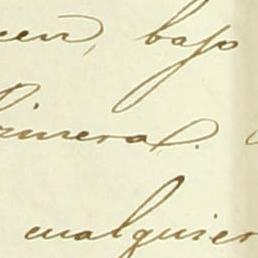 een, bajo
rimera.
cualquier